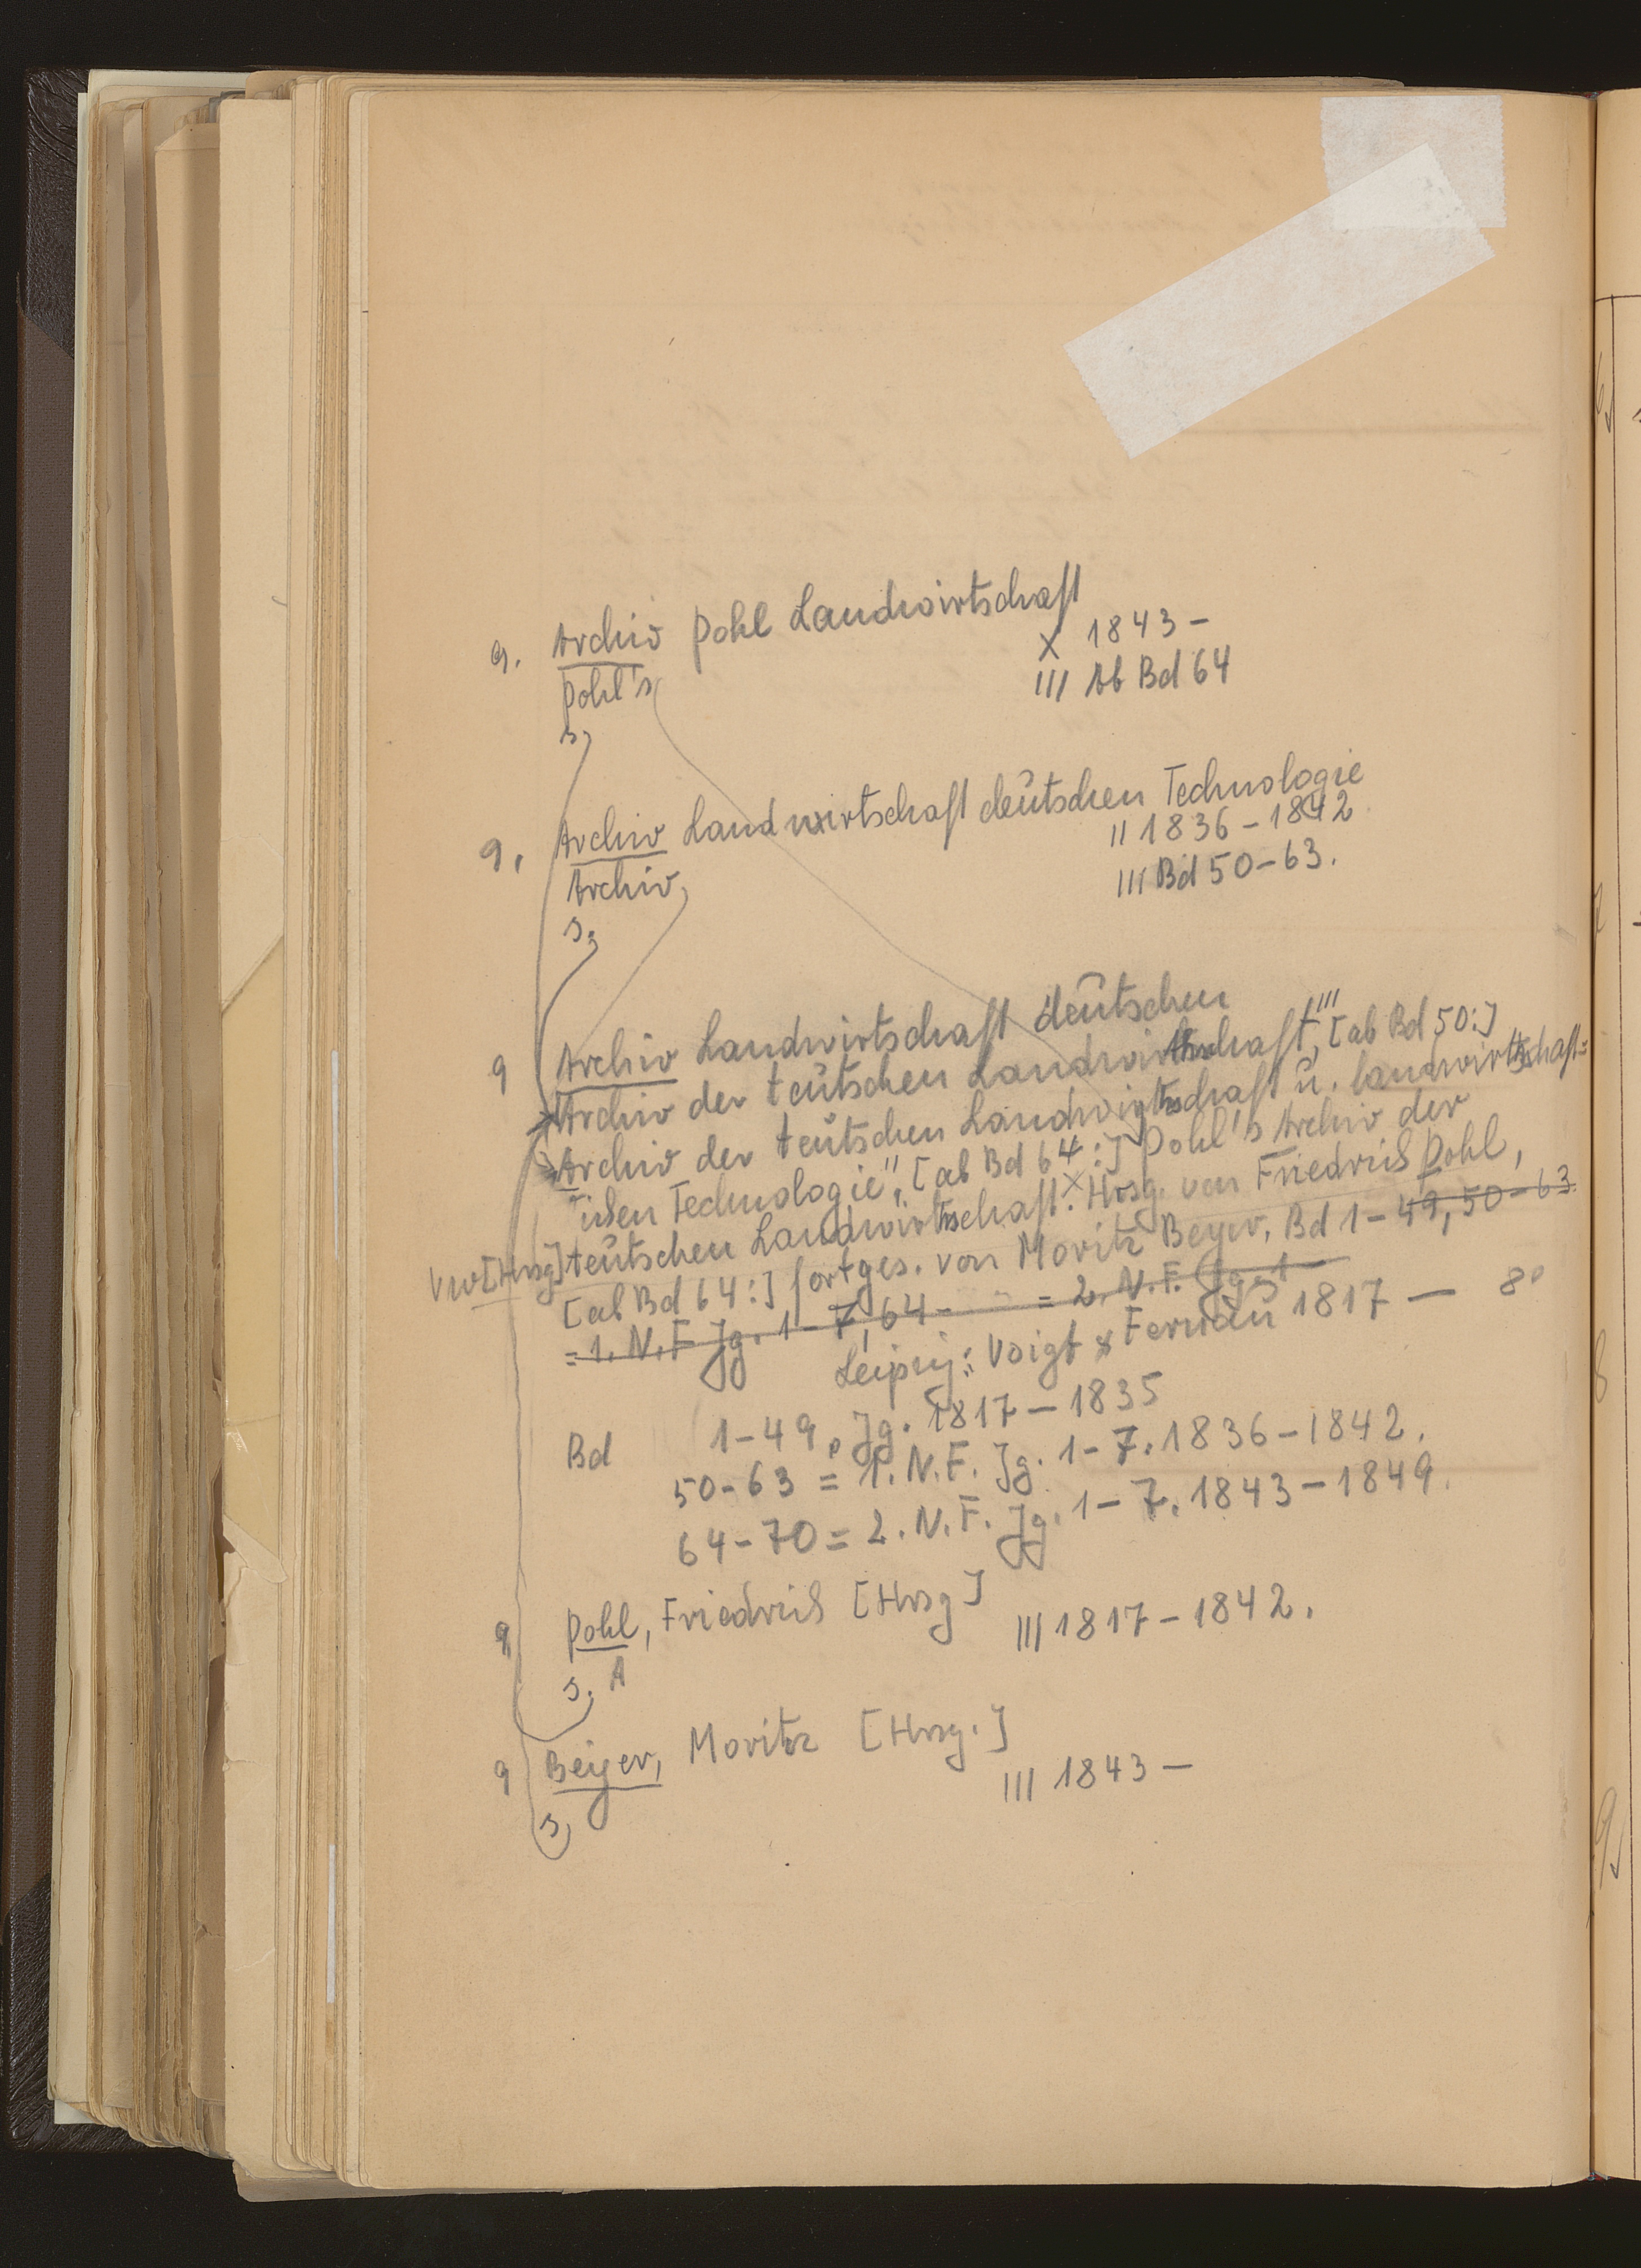 9. Archiv Pohl Landwirtschaft
X 1843 -
Pohl's
III Ab Bd 64
s.
9. Archiv Landwirtschaft deutschen Technologie
II 1836 - 1842
Archiv
III Bd 50-63.
s.
9 Archiv Landwirtschaft deutschen
Archiv der teutschen Landwirthschaft,''' [ab Bd 50:]
Archiv der teutschen Landwirthschaft u. landwirthschaft=
lichen Technologie", [ab Bd 64:] Pohl's Archiv der
teutschen Landwirthschaft. X Hrsg. von Friedrich Pohl,
Vw [Hrsg]
[ab Bd 64:] fortges. von Moritz Beyer. Bd 1-49, 50-63
= 1. N.F. Jg. 1-7, 64- = 2. N.F. Jg. 1 -
Leipzig: Voigt & Fernau 1817 - 8°
Bd 1-49, Jg. 1817-1835
50-63 = 1. N.F. Jg. 1-7. 1836-1842.
64-70 = 2. N.F. Jg. 1-7. 1843-1849.
9 Pohl, Friedrich [Hrsg]
III 1817-1842.
s. A
9 Beyer, Moritz [Hrsg.]
III 1843 -
s.